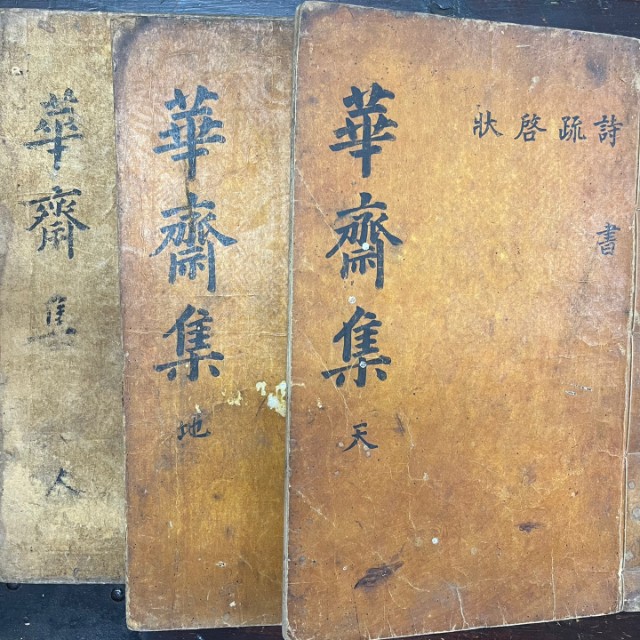 詩疏啓狀
書
華齋集 天
華齋集 地
華齋集 人